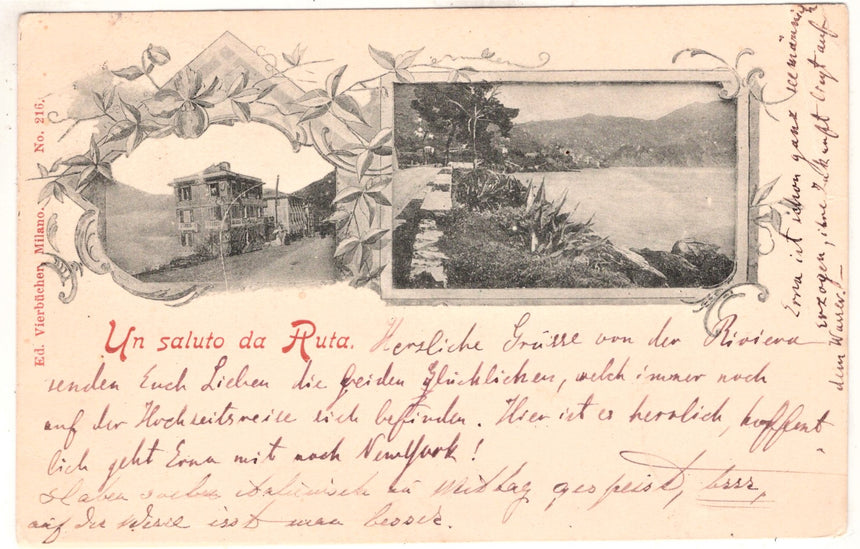 Ed. Vierbücher, Milano. No. 216.
Un saluto da Ruta. Herzliche Grüsse von der Riviera
senden Euch Lieben die beiden Glücklichen, welch immer noch
auf der Hochzeitsreise sich befinden. Hier ist es herrlich, hoffent
lich geht Erna mit nach NewYork!
Haben soeben italienisch zu Mittag gespeist, brrr,
auf der Wiese isst man besser.
Erna ist schon ganz seemännisch
erzogen, ihre Zukunft liegt auf
dem Wasser!